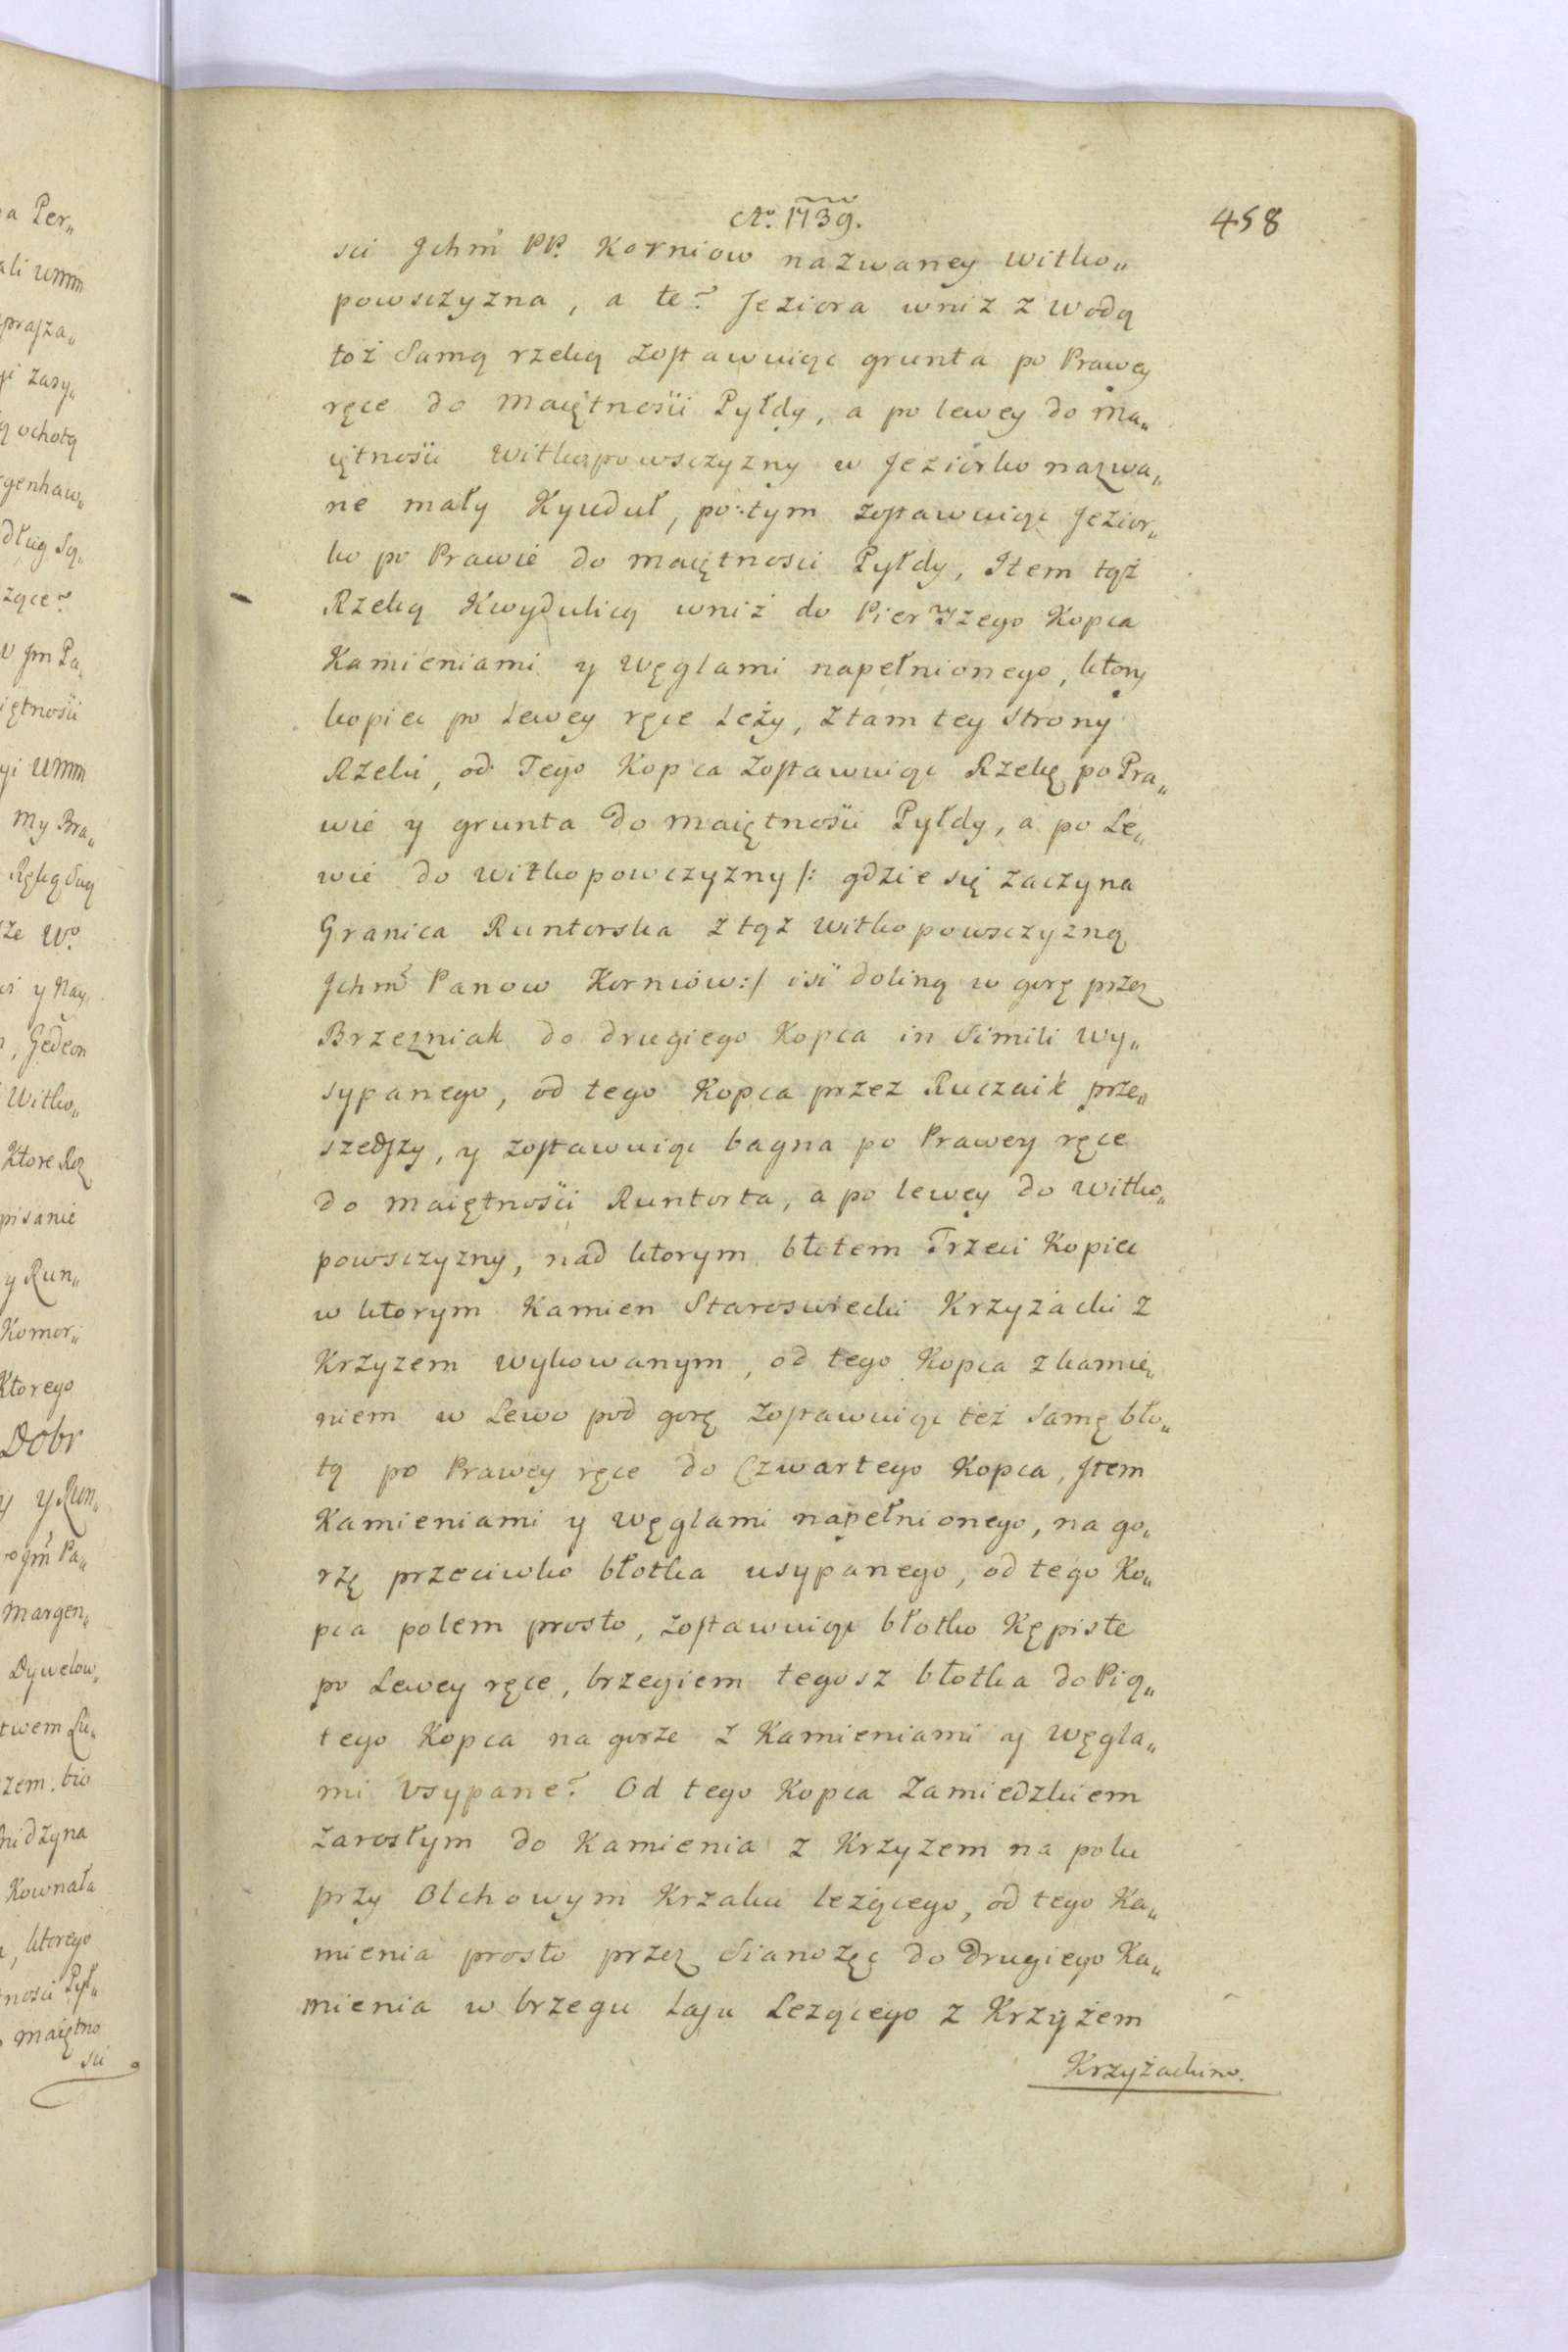 Aō. 1739.
458
sci Jchm̃ PP. Korniow nazwaney Witko„
powszczyzna, a te? Jeziora wniz z wodą
toż Samą rzeką zostawuiąc grunta po Prawey
ręce do Maiętności Pyłdy, a po lewey do ma„
iętności Witkopowszczyzny w Jeziorko nazwa„
ne mały Kyuduł, po tym zostawuiąc Jezior„
ko po Prawie do maiętnosci Pyłdy, Item tąż
Rzeką Kwydulicą wniż do Pierwszego Kopca
Kamieniami y Węglami napełnionego, ktory
kopiec po Lewey ręce Leży, z tamtey Strony
Rzeki, od Tego Kopca Zostawuiąc Rzekę po Pra„
wie y grunta do maiętności Pyłdy, a po Le„
wie do witkopowczyzny /: gdzie się zaczyna
Granica Runtorska z tąż witkopowszczyzną
Jchm̃ Panow Korniów :/ iść doliną w gorę przez
Brzezniak do drugiego Kopca in Simili wy„
sypanego, od tego Kopca przez Ruczaik prze„
szedszy, y zostawuiąc bagna po Prawey ręce
do maiętności Runtorta, a po lewey do witko„
powszczyzny, nad ktorym błotem Trzeci Kopiec
w ktorym Kamien Staroswiecki Krzyżacki z
Krzyzem wykowanym, od tego Kopca z kamie„
niem w Lewo pod gorę Zostawuiąc też Samę bło„
tą po Prawey ręce do Czwartego Kopca, Jtem
Kamieniami y węglami napełnionego, na go„
rzę przeciwko błotka usypanego, od tego Ko„
pca polem prosto, zostawuiąc błotko Kępiste
po Lewey ręce, brzegiem tegosz błotka do Pią„
tego Kopca na gorze z Kamieniami y węgla„
mi Vsypane? Od tego Kopca Zamiedzkiem
zarosłym do Kamienia z Krzyzem na polu
przy Olchowym Krzaku leżącego, od tego Ka„
mienia prosto przez Sianożęć do Drugiego Ka„
mienia w brzegu Lasu Lezącego z Krzyżem
Krzyżackim.
a Per„
ali umm
zasy„
ochotą
genhaw„
dług Są„
żące?
Jm Pa„
iętności
umm
my Bra„
ze W?
y Nay„
, Gedeon
Witko„
Ktore Roz
pisanie
y Run„
Komor„
Ktorego
Dobr
y Run„
Jm̃ Pa„
Margen„
Dywelow„
twem Lu„
zem. bio
Kownata
, ktorego
nosci Pył„
maiętno
sci